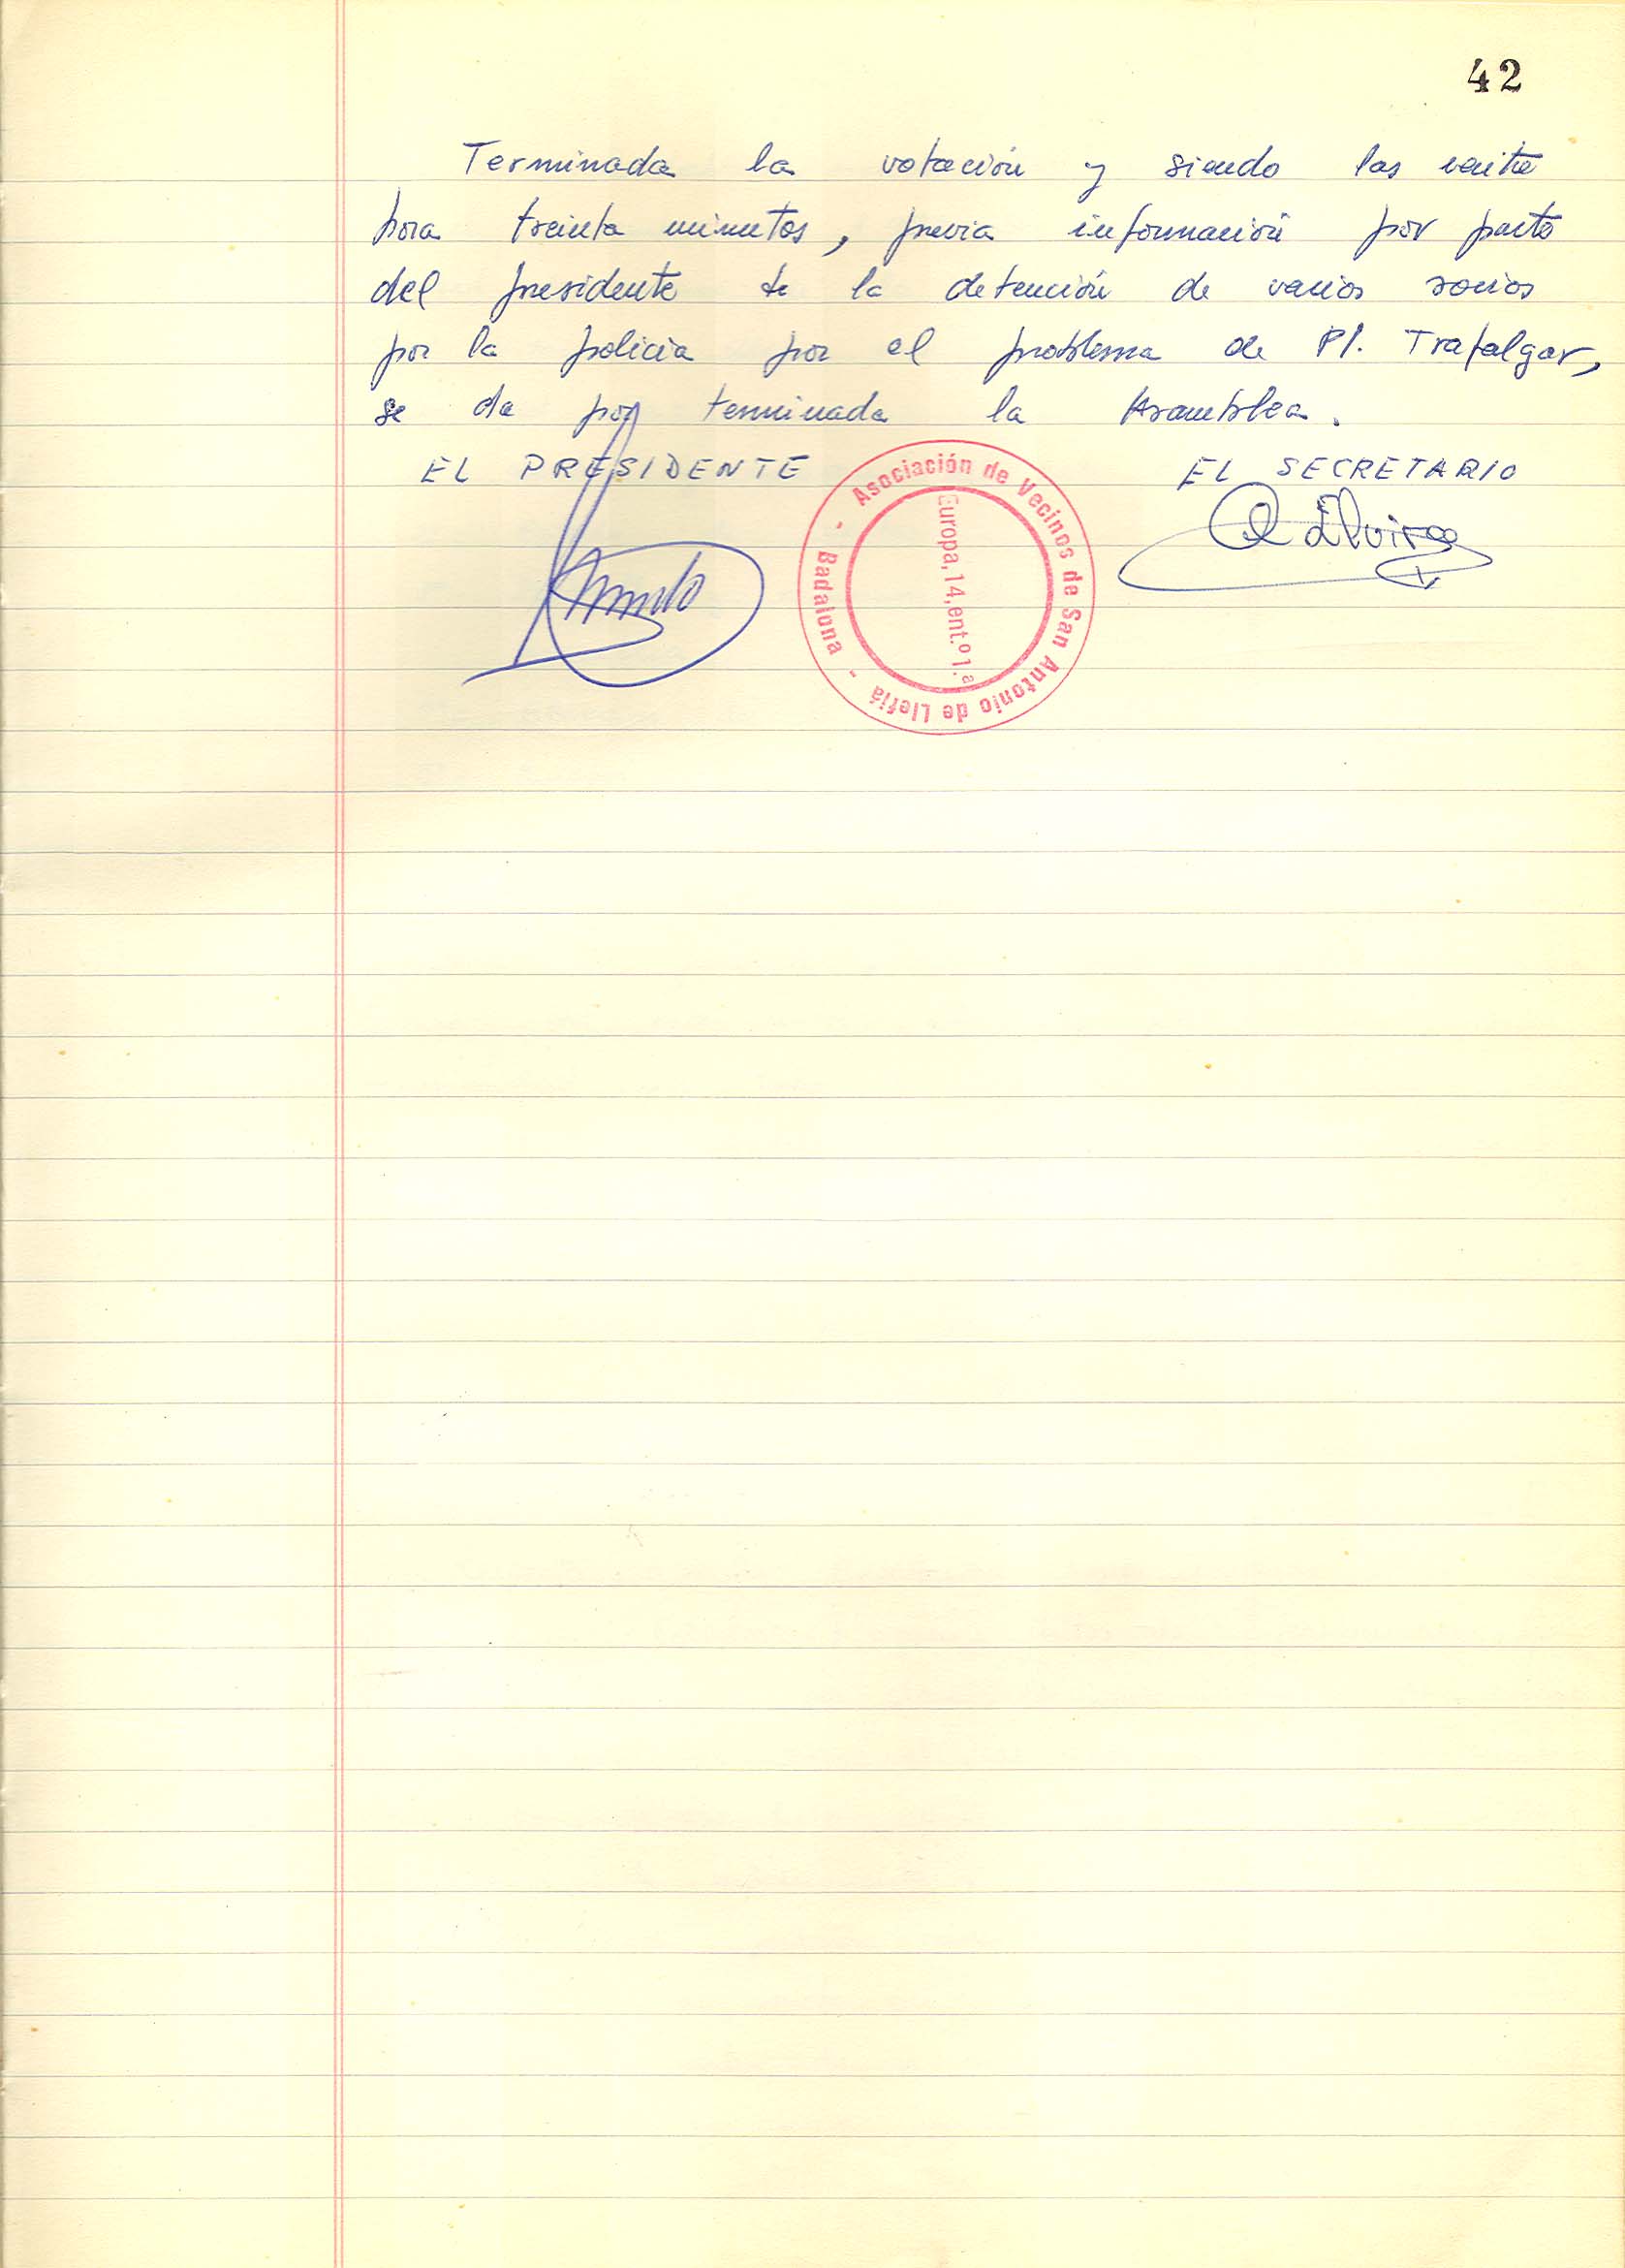 42
Terminada la votación y siendo las veinte
hora treinta minutos, previa información por parte
del presidente de la detención de varios socios
por la policia por el problema de Pl. Trafalgar,
se da por terminada la Asamblea.
EL PRESIDENTE EL SECRETARIO
Elvira
Asociación de Vecinos de San Antonio de Llefiá - Badalona -
Europa, 14, ent.º 1.ª